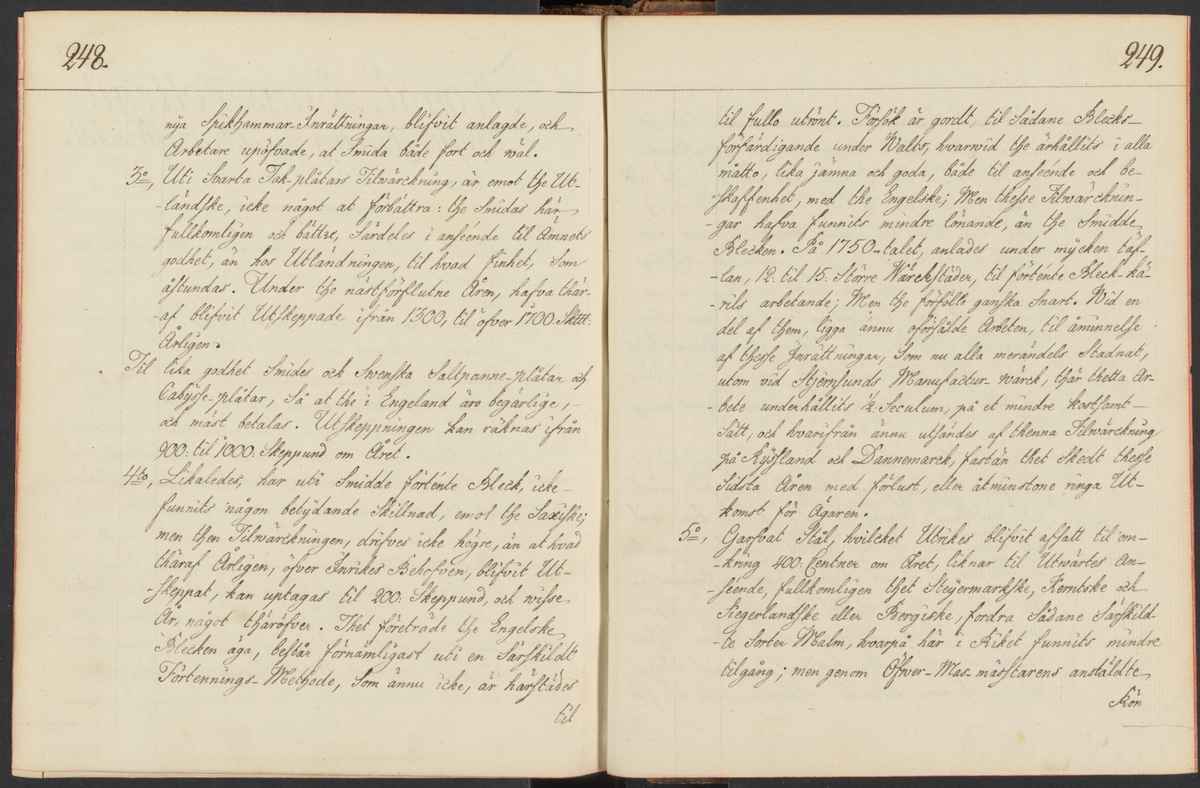 248.
nya Spikhammar-Inrättningar, blifvit anlagde, och
Arbetare upöfvade, at Smida både fort och wäl.
3o, Uti Svarta Tak-plåtars Tilwärckning, är emot the Ut-
-ländske, icke något at förbättra: the Smidas här
fullkomligen och bättre, Särdeles i anseende til Ämnets
godhet, än hos Utlandningen, til hvad finhet, Som
åstundas. Under the nästförflutne Åren, hafva thär-
af blifvit Utskeppade ifrån 1300, til öfver 1700. Skttt:
Årligen.
Til lika godhet Smides ock Swenska Saltpanne-plåtar och
Cabysse-plåtar, Så at the i Engeland äro begärlige,
och mäst betalas. Utskeppningen kan räknas ifrån
900. til 1000. Skeppund om Året.
4to, Likaledes, har uti Smidde förtente Bleck, icke
funnits någon betydande Skillnad, emot the Saxiske;
men then Tilwärckningen, drifves icke högre, än at hvad
thäraf Årligen, öfver Inrikes Behofven, blifvit Ut-
-skeppat, kan uptagas til 200. Skeppund, och wisse
År, något thäröfver. Thet företräde the Engelske
Blecken äga, består förnämligast uti en Särskildt
Förtennings-Methode, Som ännu icke, är härstädes
til
249.
til fullo utrönt. Försök är gordt, til Sådane Blecks-
förfärdigande under Wals, hvarwid the ärhållits i alla
måtto, lika jämna och goda, både til anseende och be-
-skaffenhet, med the Engelske; Men thesse Tilwärcknin-
-gar hafva funnits mindre lönande, än the Smidde
Blecken. På 1750-talet, anlades under mycken täf-
-lan, 12. til 15. Större Wärckstäder, til förtente Bleck-kä-
-rils arbetande; Men the förföllo ganska Snart. Wid en
del af them, ligga ännu oförsålde Arbeten, til åminnelse
af thesse Inrättningar, Som nu alla merändels Stadnat,
utom vid Stjernsunds Manufactur-wärck, thär thetta Ar-
-bete underhållits ½ Seculum, på et mindre kostsamt
Sätt, och hvarifrån ännu utsändes af thenna Tilwärckning
på Ryssland och Dannemarck, fastän thet Skedt thesse
Sidsta Åren med förlust, eller åtminstone ringa Ut-
komst för Ägaren.
5o, Garfvat Stål, hvilcket Utrikes blifvit afsatt til om-
-kring 400. Centner om Året, liknar til Utwärtes An-
-seende, fullkomligen thet Steyermarkske, Kerntske och
Siegerlandske eller Bergiske, fordra Sådane Särskild-
-te Sorter Malm, hvarpå här i Riket funnits mindre
tilgång; men genom Öfwer-Mas-mästarens anstäldte
Rön